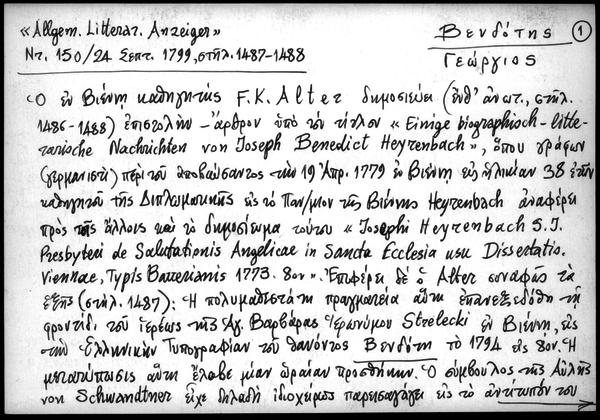 «Allgem. Litterar. Anzeiger»
Nr. 150/24 Σεπτ. 1799, στήλ. 1487-1488
Βενδότης
Γεώργιος
1
Ὁ ἐν Βιέννῃ καθηγητὴς F.K. Alter δημοσιεύει (ἔνθ' ἀνωτ., στήλ.
1486-1488) ἐπιστολὴν - ἄρθρον ὑπὸ τὸν τίτλον «Einige biographisch-litte-
rarische Nachrichten von Joseph Benedict Heyrenbach», ὅπου γράφων
(γερμανιστὶ) περὶ τοῦ ἀποβιώσαντος τὴν 19 Ἀπρ. 1779 ἐν Βιέννῃ εἰς ἡλικίαν 38 ἐτῶν
καθηγητοῦ τῆς Διπλωματικῆς εἰς τὸ Παν/μιον τῆς Βιέννης Heyrenbach ἀναφέρει
πρὸς τοῖς ἄλλοις καὶ τὸ δημοσίευμα τούτου «Josephi Heyrenbach S.J.
Presbyteri de Salutationis Angelicae in Sancta Ecclesia usu Dissertatio.
Viennae, Typis Bauerianis 1773. 8ον». Ἐπιφέρει δὲ ὁ Alter συναφῶς τὰ
ἑξῆς (στήλ. 1487): Ἡ πολυμαθεστάτη πραγματεία αὕτη ἐπανεξεδόθη τῇ
φροντίδι τοῦ ἱερέως τῆς Ἁγ. Βαρβάρας Ἱερωνύμου Strelecki ἐν Βιέννῃ, εἰς
τὴν Ἑλληνικὴν Τυπογραφίαν τοῦ θανόντος Βενδότη τὸ 1794 εἰς 8ον. Ἡ
μετατύπωσις αὕτη ἔλαβε μίαν ὡραίαν προσθήκην. Ὁ σύμβουλος τῆς Αὐλῆς
von Schwandtner εἶχε δηλαδὴ ἰδιοχείρως παρεισαγάγει εἰς τὸ ἀντίτυπόν του